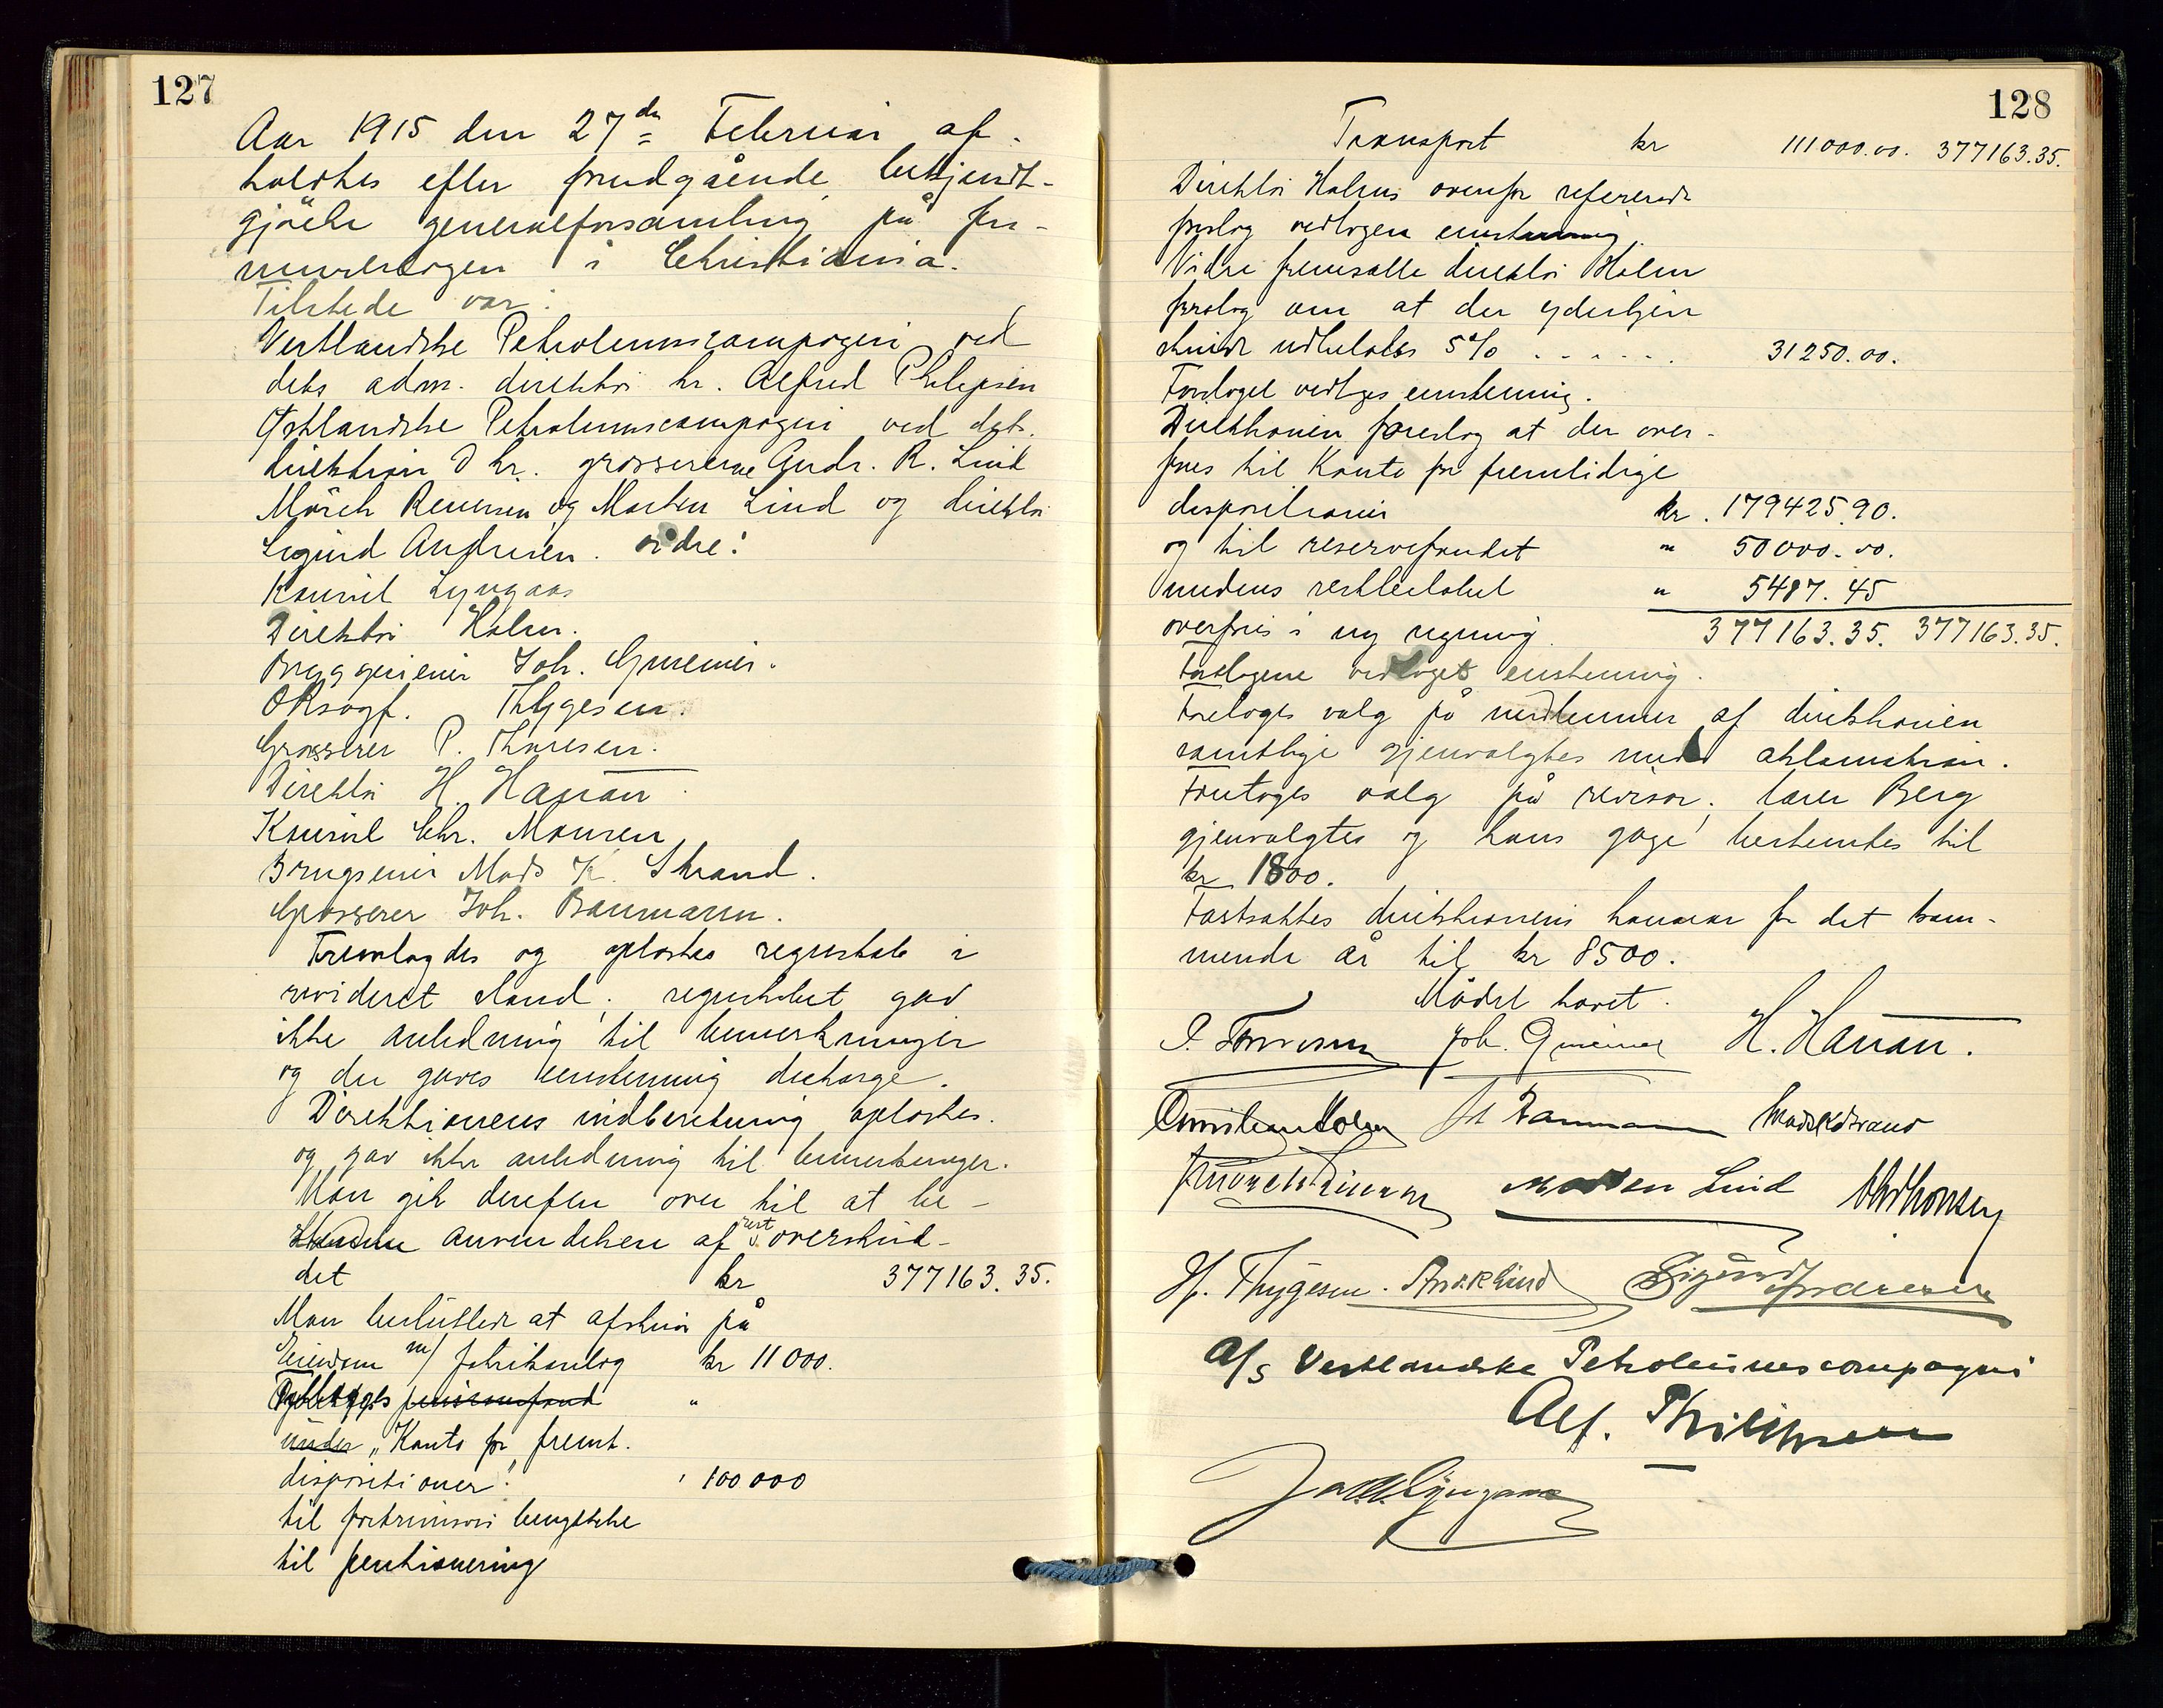 127
Aar 1915 den 27de Februar af-
holdtes efter forudgående bekjendt-
gjörelse generalforsamling på for-
nuverlogen i Christiania.
Tilstede var:
Vestlandske Petroleumscompagni ved
dets adm. direktör hr. Alfred Philipsen
Østlandske Petroleumscompagni ved dets
direktion d hr. grossererne Andr. R. Lind
Mörch Reiersen og Morten Lind og direktör
Sigurd Andresen. vidre:
Konsul Lyngaas
Direktör Holm.
Bryggerieier Joh. Gmeiner.
ORsagf. Thygesen.
Grosserer P. Thoresen.
Direktör H. Hanan
Konsul Chr. Monsen
Brugseier Mads K. Strand.
Grosserer Joh. Baumann.
Fremlagdes og oplæstes regnskab i
revideret stand; regnskabet gav
ikke anledning til bemerkninger
og der gaves enstemmig decharge.
Direktionens indberetning oplæstes.
og gav ikke anledning til bemerkninger.
Man gik derefter over til at be-
stemme anvendelsen af rest overskud-
det kr 377163.35.
Man besluttede at afskrive på
Eiendom m/ fabrikanlæg kr 11000.
pensionsfond "
under "Konto for fremt.
dispositioner". " 100000
til fortrinsvis benyttelse
til pentionering
128
Transport kr 111000.00. 377163.35.
Direktör Holms ovenfor refererede
forslag vedtagen enstemmig.
Vidre fremsatte direktör Holm
forslag om at der yderligere
skulde udbetales 5% ...... 31250.00.
Forslaget vedtoges enstemmig.
Direktionen foreslog at der over-
føres til Konto for fremtidige
dispositioner kr. 179425.90.
og til reservefondet " 50000.00.
medens restbeløbet " 5487.45
overføres i ny regning. 377163.35. 377163.35.
Forslagene vedtoges enstemmig.
Foretoges valg på medlemmer af direktionen
samtlige gjenvalgtes med aklamation.
Foretoges valg på revisor; lærer Berg
gjenvalgtes og hans gage bestemtes til
kr 1800.
Fastsattes direktionens honorar for det kom-
mende år til kr 8500.
Mödet hævet.
P. Thoresen Joh. Gmeiner H. Hanan.
Holm Joh Baumann Mads K Strand
Mörch Reiersen Morten Lind Chr Monsen
Hj. Thygesen. Andr R Lind Sigurd Andresen
A/S Vestlandske Petroleumscompagni
Alf. Philipsen
Lyngaas